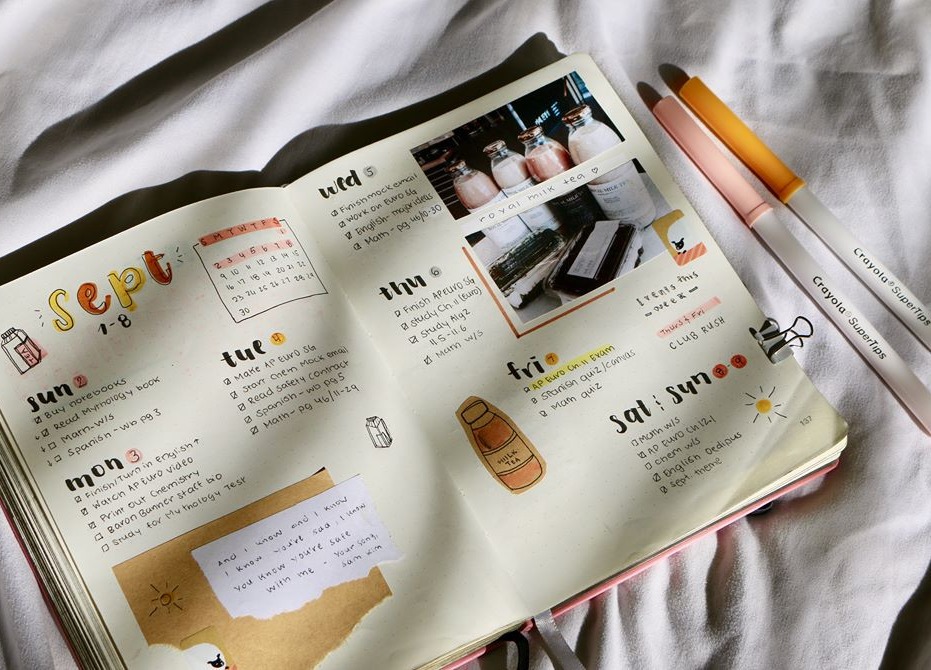 sept
1-8
S M T W T F S
1
2 3 4 5 6 7 8
9 10 11 12 13 14 15
16 17 18 19 20 21 22
23 24 25 26 27 28 29
30
sun 2
Buy notebooks
Read Mythology book
Math-W/S
Spanish - WB pg 3
mon 3
Finish/Turn in English
Watch AP Euro Video
Print out Chemistry
Baron Banner Staff bio
Study for Mythology Test
tue 4
Make AP Euro SG
Start Chem Mock Email
Read safety contract
Spanish - WB pg 5
Math - pg 46/11-29
And I know and I know
I know you're sad, I know
you know you're safe
with me - your song,
sam kim
wed 5
Finish mock email
Work on Euro SG
English - major ideas
Math - pg 46/10-30
royal milk tea
thu 6
Finish AP Euro SG
Study Ch. 11 (Euro)
Study Alg 2
11.5-11.6
Math W/S
events this
week
Thurs & Fri
CLUB RUSH
fri 7
AP Euro Ch. 11 Exam
Spanish quiz/canvas
Math quiz
MILK
TEA
sat ; sun 8 9
Math W/S
AP Euro Ch. 12.1
Chem W/S
English Dedious
Sept. theme
137
Crayola® SuperTips
Crayola® SuperTips